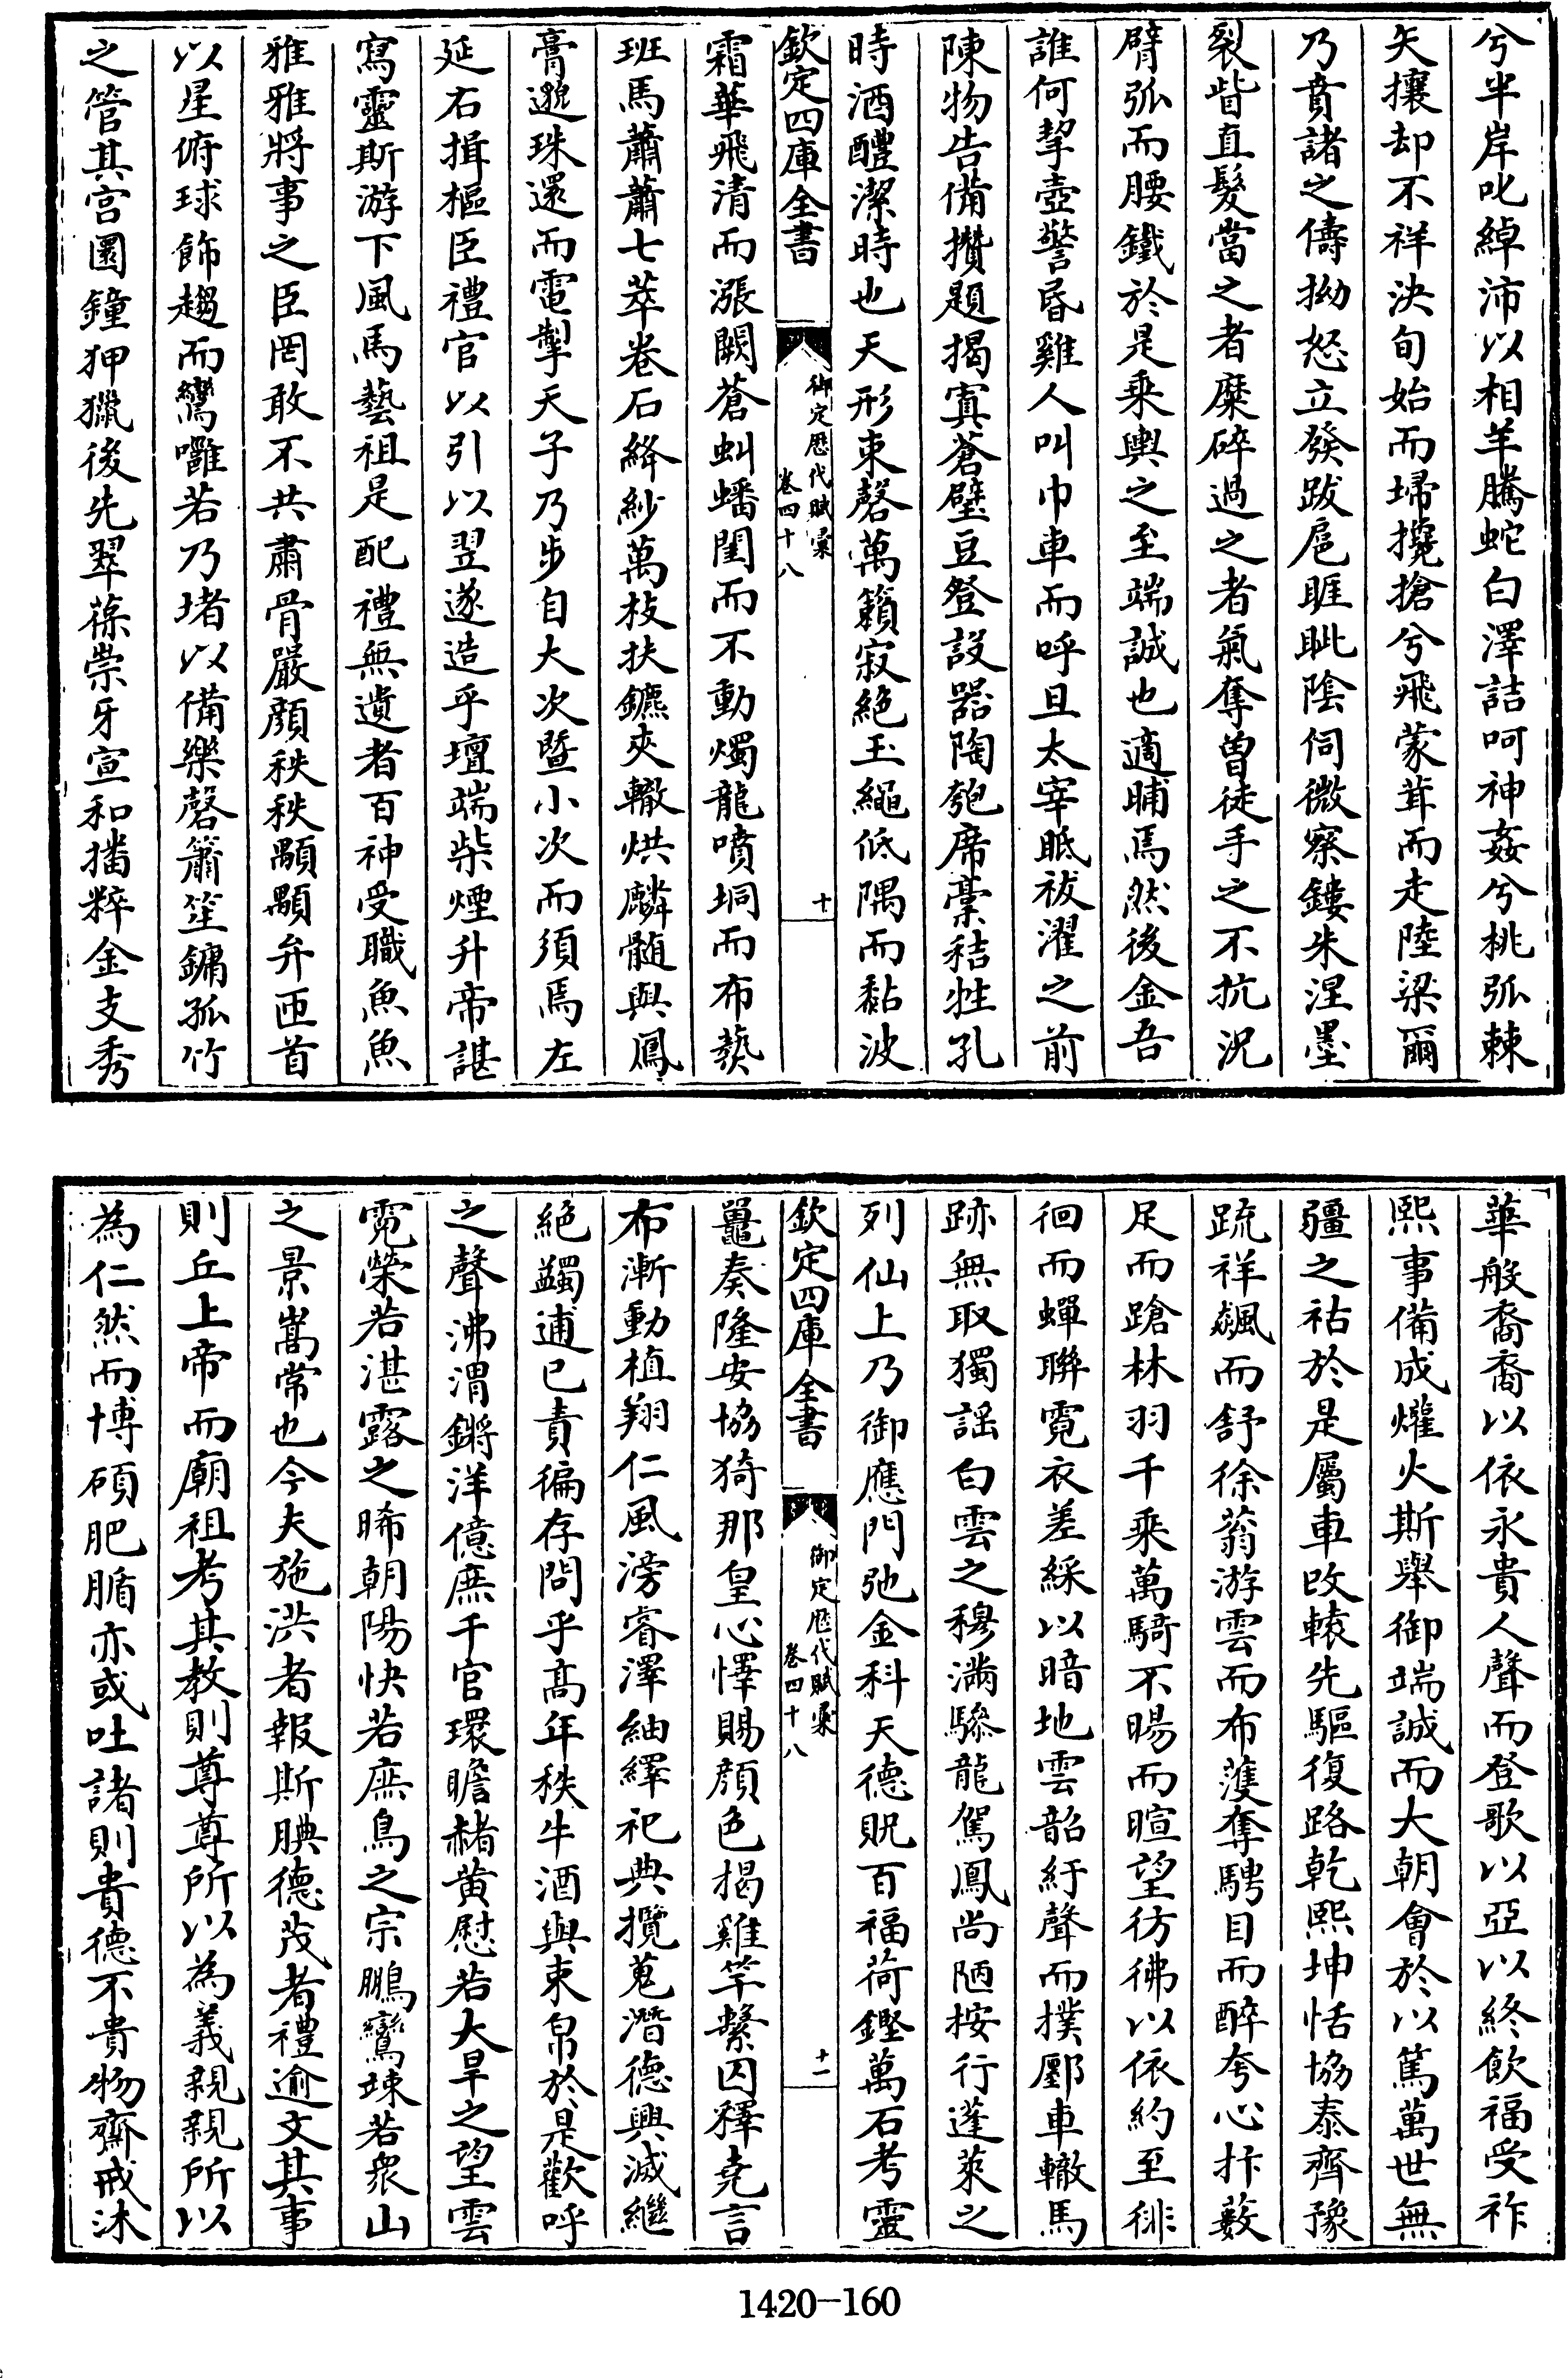 兮半岸叱綽沛以相羊騰蛇白澤詰呵神姦兮桃弧棘
矢攘却不祥決旬始而埽攙搶兮飛蒙茸而走陸梁爾
乃賁諸之儔拗怒立發跋扈睚眦陰伺微察鏤朱涅墨
裂眥直髮當之者糜碎過之者氣奪曽徒手之不抗況
臂弧而腰鐵於是乘輿之至端誠也適晡焉然後金吾
誰何挈壺警昏雞人叫巾車而呼旦太宰眂祓濯之前
陳物告備攢題揭寘蒼璧豆登設器陶匏席藁秸牲孔
時酒醴潔時也天形東磬萬籟寂絶玉繩低隅而黏波
欽定四庫全書
御定歴代賦彙
卷四十八
十
霜華飛清而漲闕蒼虯蟠闈而不動燭龍噴坰而布爇
班馬蕭蕭七萃卷石絳紗萬枝扶鑣夾轍烘麟髄與鳳
膏邈珠還而電掣天子乃步自大次暨小次而須焉左
延右揖樞臣禮官以引以翌遂造乎壇端柴煙升帝諶
寫靈斯游下風馬藝祖是配禮無遺者百神受職魚魚
雅雅將事之臣罔敢不共肅骨嚴顔秩秩顒顒弁匝首
以星俯球飾趨而鸞囇若乃堵以備樂磬簫笙鏞孤竹
之管其宫圜鐘狎獵後先翠葆崇牙宣和播粹金支秀
華般裔裔以依永貴人聲而登歌以亞以終飲福受祚
熙事備成爟火斯舉御端誠而大朝會於以篤萬世無
疆之祜於是屬車改轅先驅復路乾熙坤恬協泰齊豫
疏祥飇而舒徐蓊游雲而布濩奪騁目而醉夸心抃藪
足而蹌林羽千乘萬騎不暘而暄望彷彿以依約至徘
徊而蟬聨霓衣差綵以暗地雲韶紆聲而撲酆車轍馬
跡無取獨謡白雲之穆滿驂龍駕鳳尚陋按行蓬萊之
列仙上乃御應門弛金科天德貺百福荷鏗萬石考靈
欽定四庫全書
御定歴代賦彙
卷四十八
十一
鼉奏隆安協猗那皇心懌賜顔色揭雞竿繫囚釋堯言
布漸動植翔仁風滂睿澤紬繹祀典攬蒐潛德興滅繼
絶蠲逋已責徧存問乎髙年秩牛酒與束帛於是歡呼
之聲沸渭鏘洋億庶千官環瞻赭黄慰若大旱之望雲
霓榮若湛露之晞朝陽快若庶鳥之宗鵬鸞竦若衆山
之景嵩常也今夫施洪者報斯腆德茂者禮逾文其事
則丘上帝而廟祖考其教則尊尊所以為義親親所以
為仁然而博碩肥腯亦或吐諸則貴德不貴物齋戒沐
1420-160